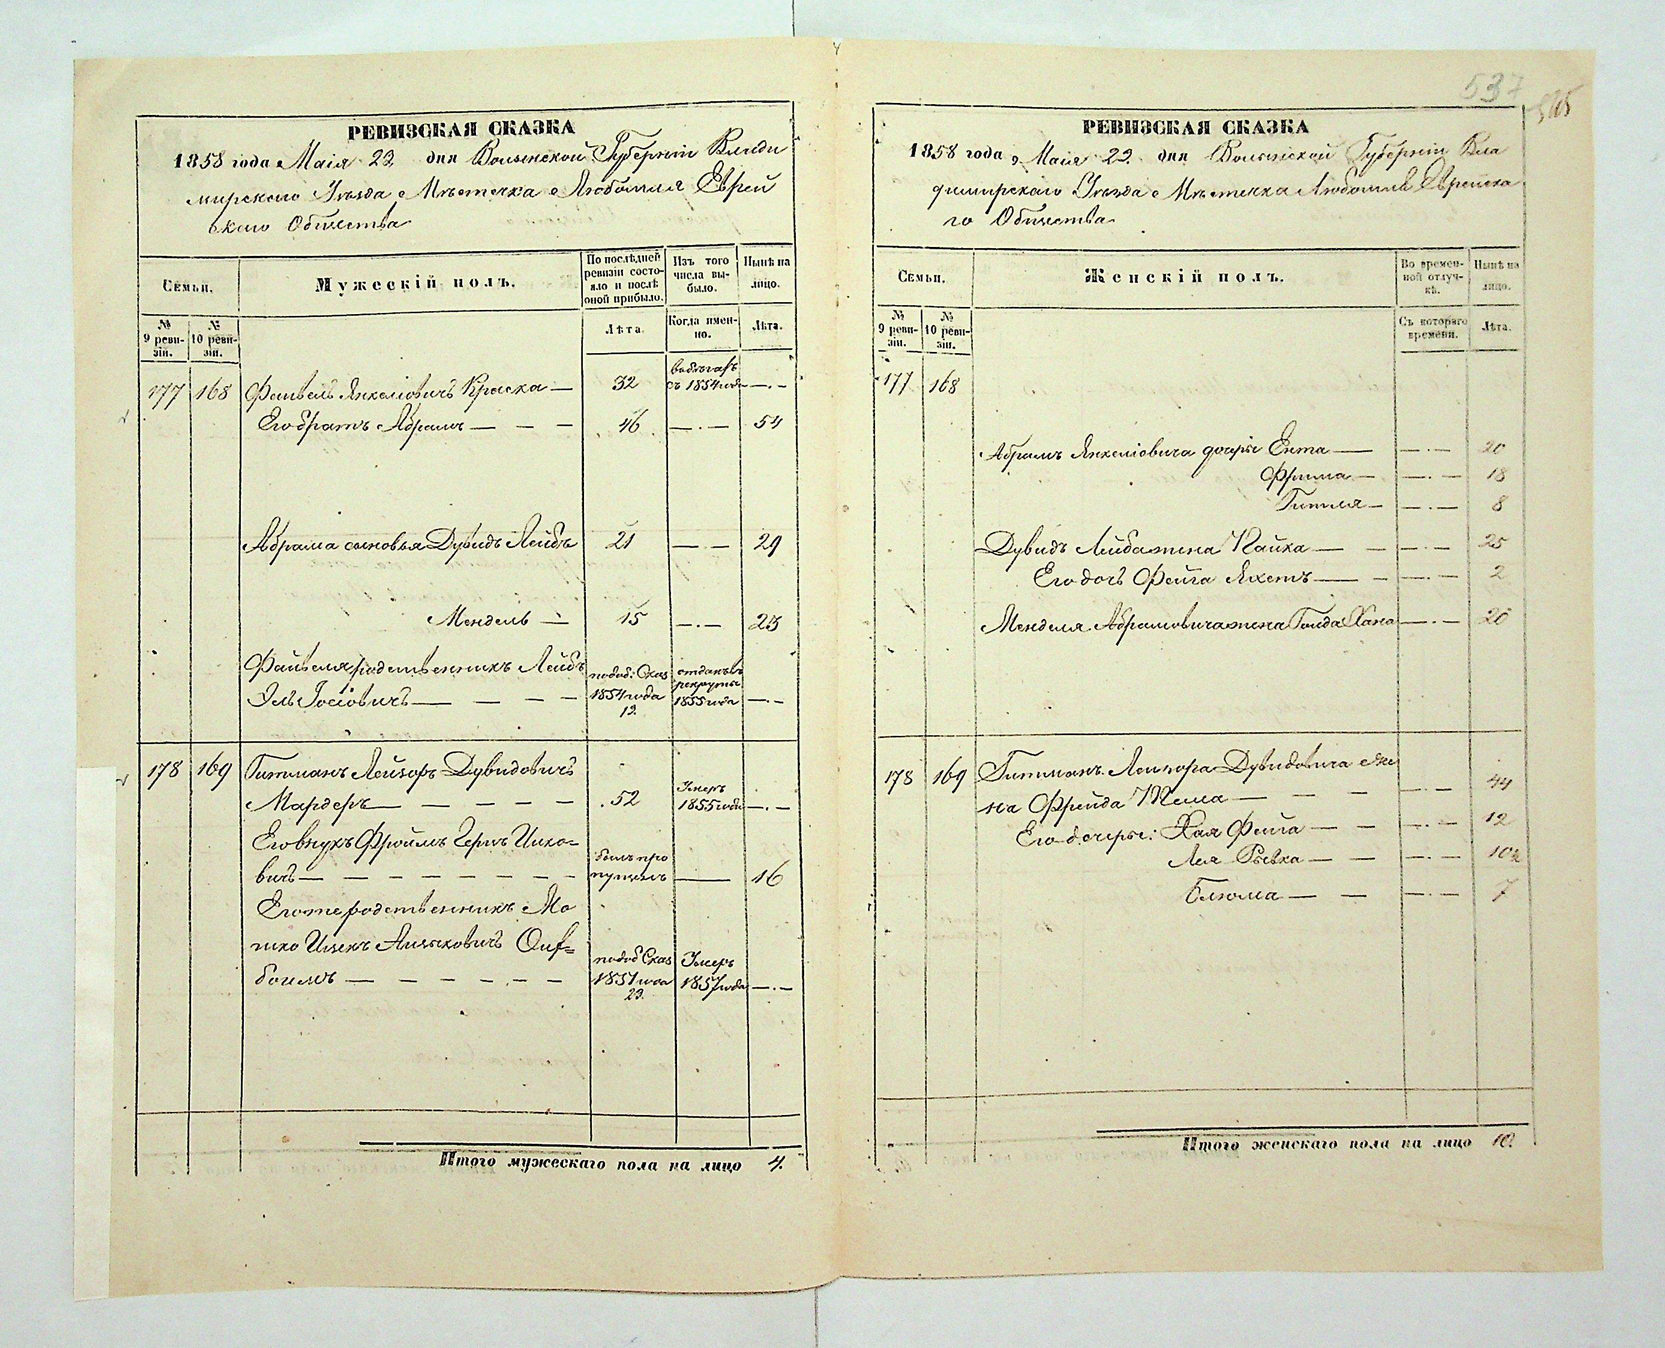 537
РЕВИЗСКАЯ СКАЗКА
1858 года Маія 22 дня Волынской Губерніи Влади
мирскаго Уѣзда Мѣстечка Любомля Еврей
скаго Общества
Семьи.
Мужескій полъ.
По послѣдней ревизіи состояло и послѣ оной прибыло.
Изъ того числа выбыло.
Нынѣ на лицо.
№ 9 ревизіи.
№ 10 ревизіи.
Лѣта.
Когда именно.
Лѣта.
177 168 Файвель Янкелiовичъ Краска — 32 въ бѣгахъ съ 1854 года —.—
Его братъ Абрамъ — — — 46 —.— 54
Абрама сыновья Дувидъ Лейбъ 21 —.— 29
Мендель — 15 —.— 23
Файвеля родственникъ Лейбъ
Эль Іосіовичъ — — — — по доб: Сказ 1854 года 12. отданъ въ рекруты 1855 года —.—
178 169 Гитманъ Лейзоръ Дувидовичъ
Мардеръ — — — — — 52 Умеръ 1855 года —.—
Его внукъ Фроимъ Герш Ицко-
вичъ — — — — — — — былъ пропущенъ — 16
Его же родственникъ Мо
шко Ицекъ Айзыковичъ
боимъ — — — — — — по доб Сказ 1851 года 23. Умеръ 1857 года —.—
Итого мужескаго пола на лицо 4.
РЕВИЗСКАЯ СКАЗКА
1858 года Маія 22 дня Волынской Губерніи Вла
димирскаго Уѣзда Мѣстечка Любомля Еврейска
го Общества
Семьи.
Женскій полъ.
Во временной отлучкѣ.
Нынѣ на лицо.
№ 9 ревизіи.
№ 10 ревизіи.
Съ котораго времени.
Лѣта.
177 168
Абрамъ Янкелiовича дочери Ента — —.— 20
Фрима — —.— 18
Гитля — —.— 8
Дувидъ Лейба жена Чайка — — —.— 25
Его дочь Фейга Яхетъ — — —.— 2
Менделя Абрамовича жена Голда Хана —.— 20
178 169 Гитманъ Лейзора Дувидовича же
на Фрейда — — — —.— 44
Его дочери: Хая Фейга — — —.— 12
Лея Рывка — — —.— 10½
Блюма — — —.— 7
Итого женскаго пола на лицо 10.